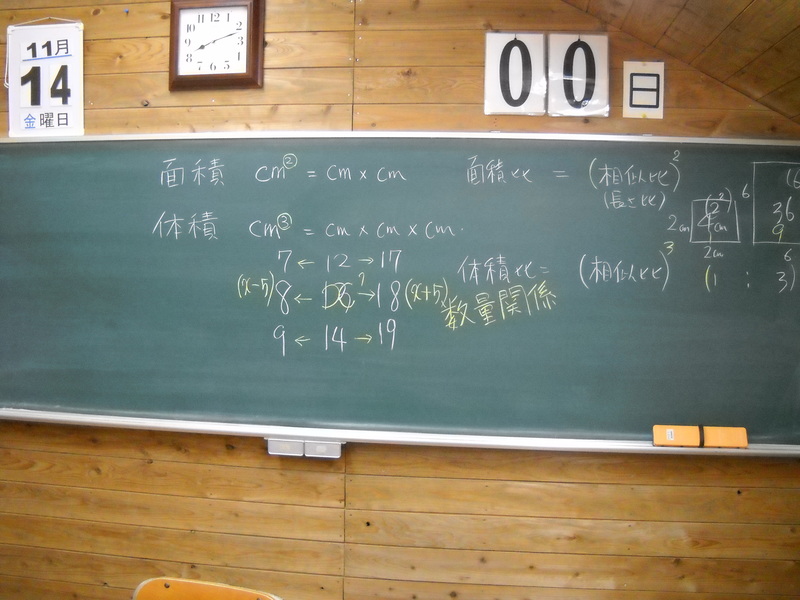 11月
14
金曜日
12 1 2 3 4 5 6 7 8 9 10 11
00日
面積 cm② = cm × cm
体積 cm③ = cm × cm × cm.
7 ← 12 → 17
(x-5) 8 ← → 18 (x+5)
9 ← 14 → 19
面積比 = (相似比)²
(長さ比)
体積比 = (相似比)³
数量関係
2cm
2cm
6
36
9
6
(1 : 3)